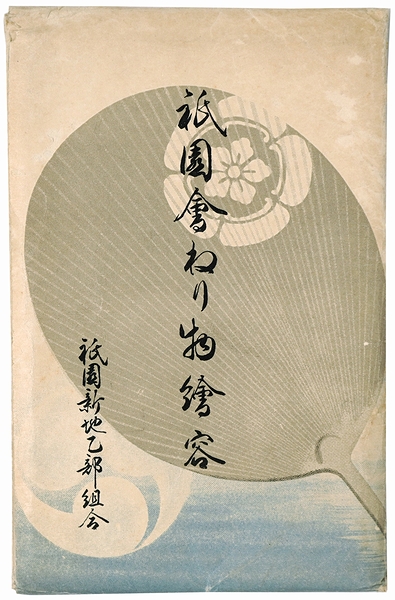 祇園會ねり物繪容
祇園新地乙部組合